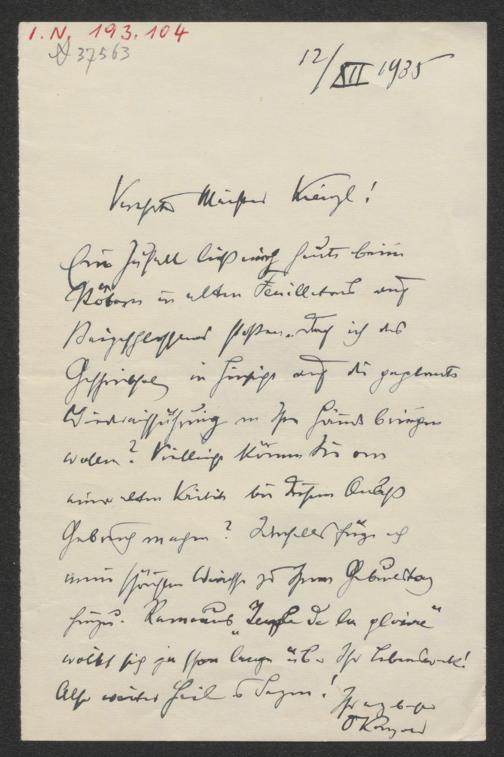 I. N. 193.104
N 37563
12/XII 1935
Verehrter Meister Kienzl!
Ein Zufall ließ mich heute beim
Stöbern in alten Feuilletons auf
Beigeschlossenes stoßen. Darf ich das
in Hinsicht auf die geplante
Wiederaufführung in Ihre Hände bringen
wollen? Vielleicht können Sie von
meiner alten Kritik bei diesem Anlaß
Gebrauch machen? füge ich
meine schönsten Wünsche zu Ihrem Geburtstag
hinzu. Rameaus "Temple de la gloire"
wölbt sich ja schon lange über Ihr Lebenswerk!
Also weiter Heil u Segen!
Ihr ergebener